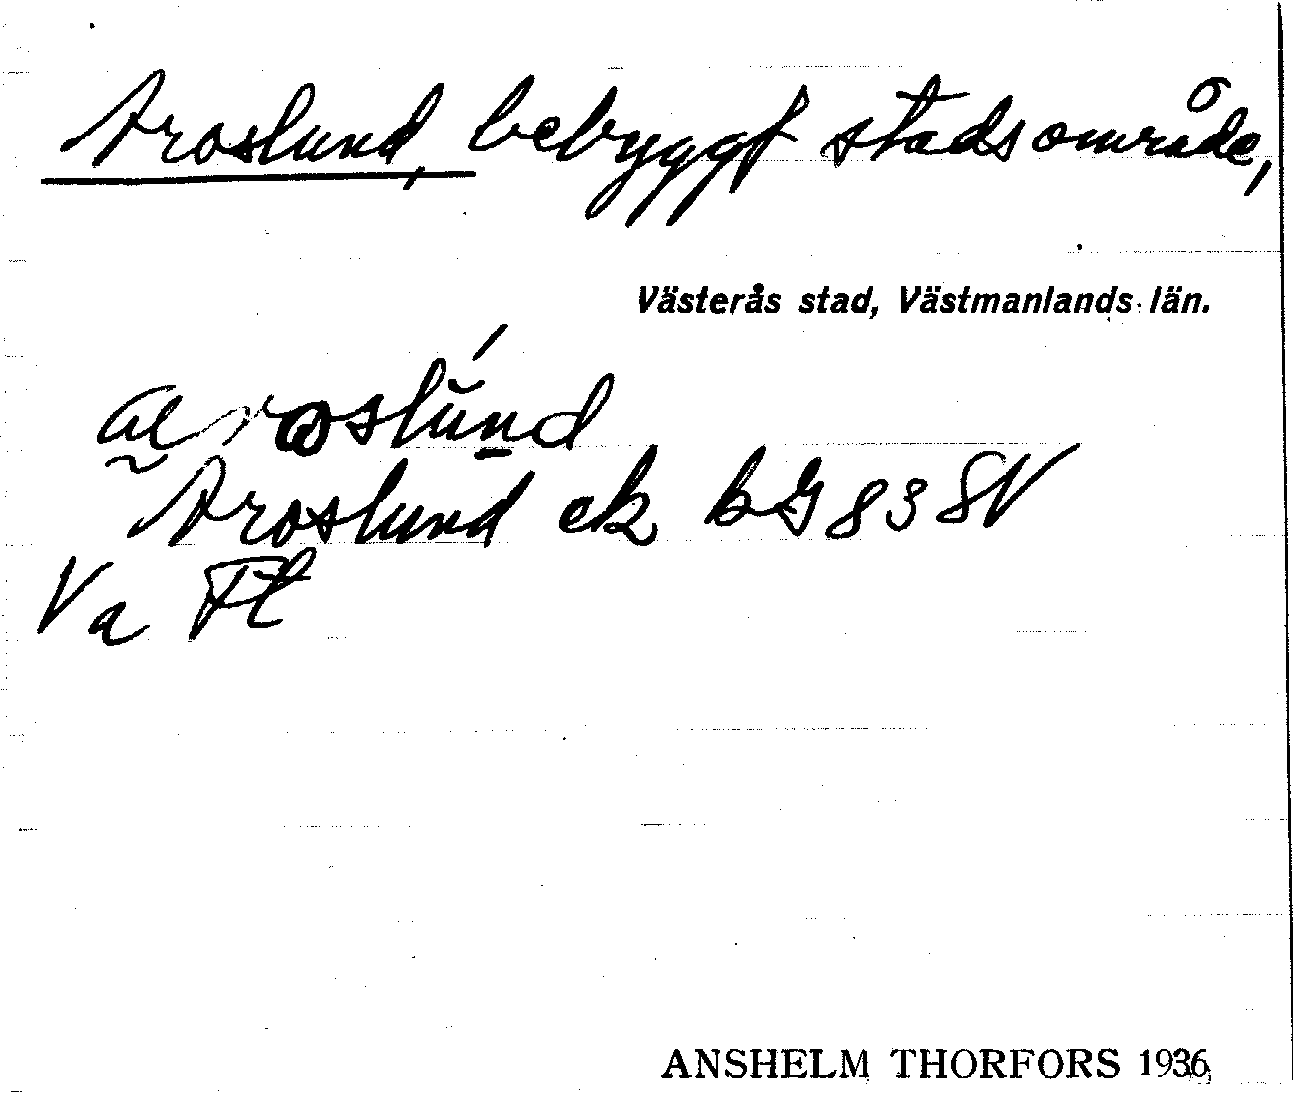 Aroslund, bebyggt stadsområde,
Västerås stad, Västmanlands län.
aroslund
Aroslund ek bG 83 SV
Va Fl
ANSHELM THORFORS 1936